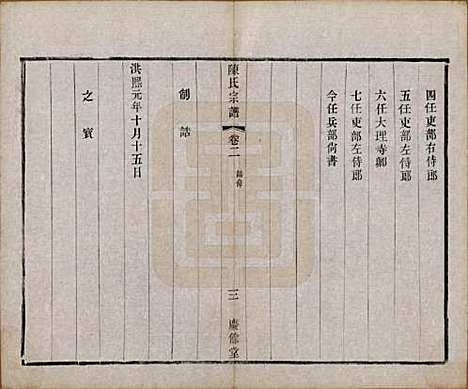 四任吏部右侍郎
五任吏部左侍郎
六任大理寺卿
七任吏部左侍郎
今任兵部尚書
陳氏宗譜
卷二
三
慶餘堂
制誥
洪熙元年十月十五日
之寶